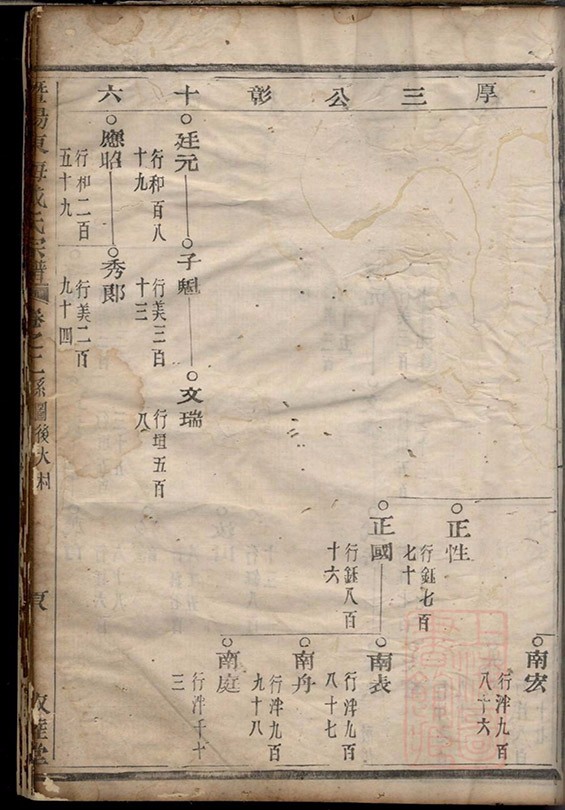 厚三公彰十六
南宏
行泮九百
八十六
正性
行鈺七百
七十七
正國
行鈺八百
十六
南表
行泮九百
八十七
南舟
行泮九百
九十八
南庭
行泮千十
三
廷元
行和百八
十九
子魁
行美三百
十三
文瑞
行垣五百
八
應昭
行和二百
五十九
秀郎
行美二百
九十四
暨陽東海成氏宗譜 卷之二 系圖後大村